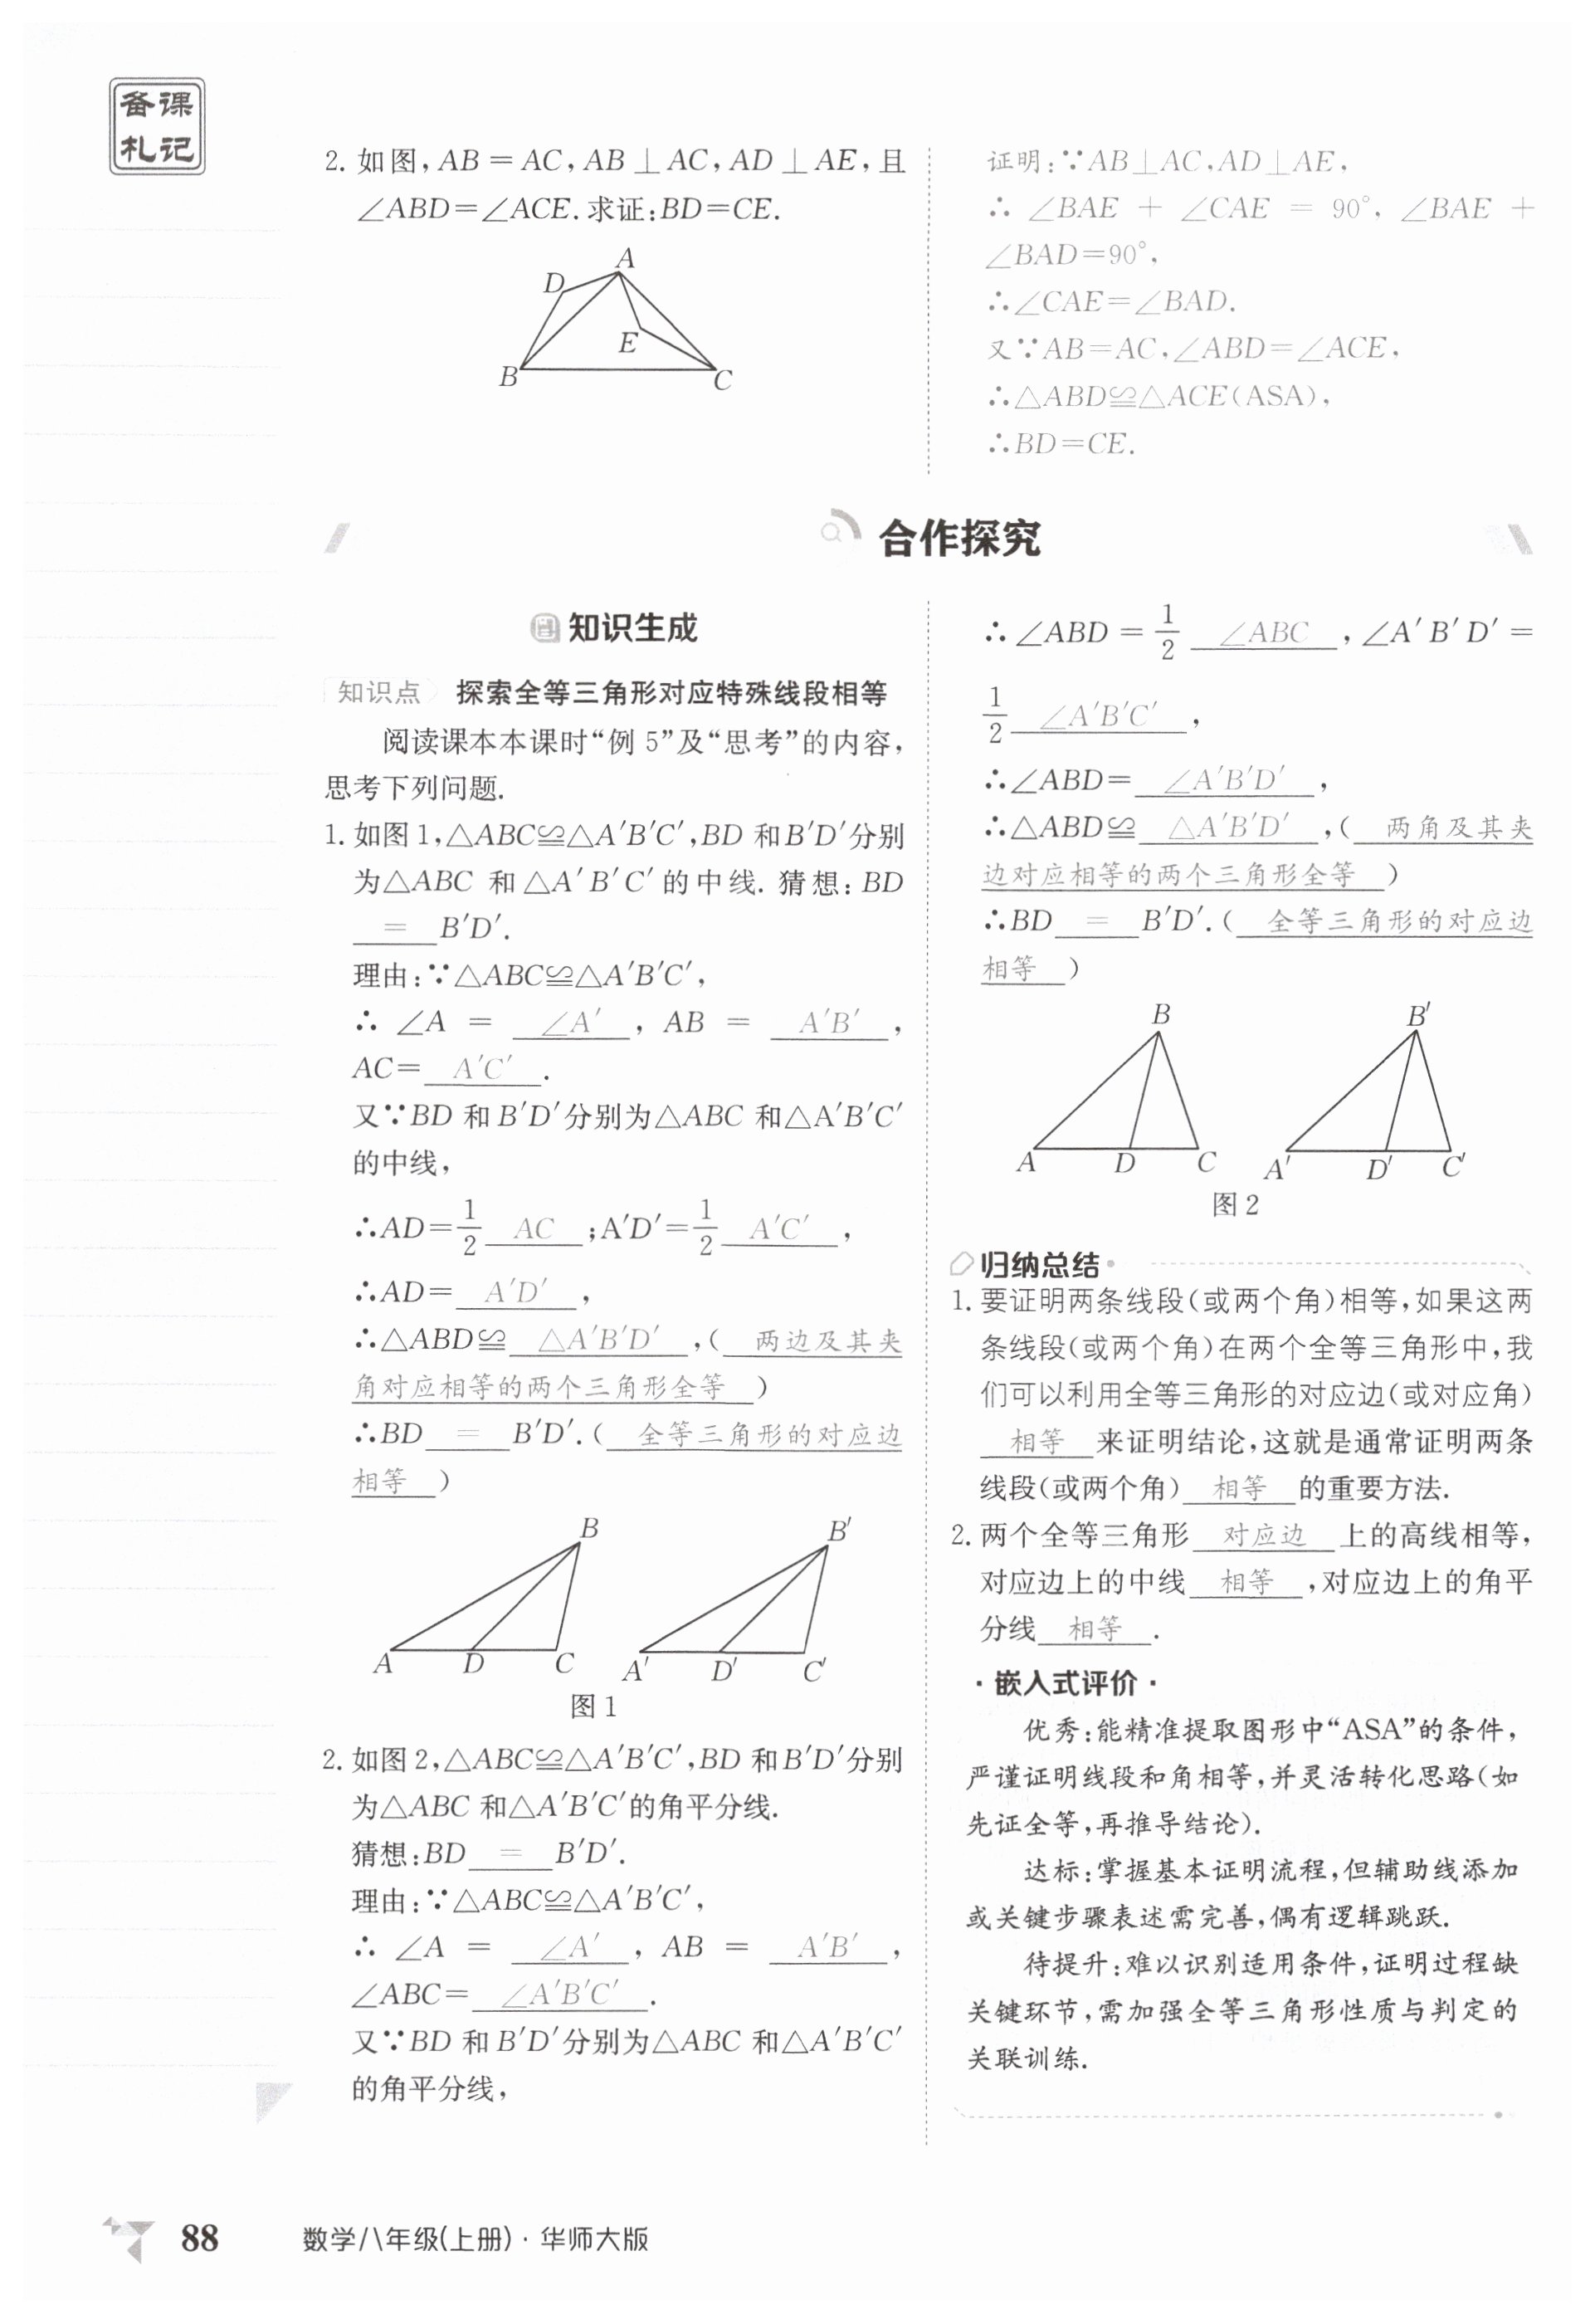 备课
札记
2. 如图,AB=AC,AB⊥AC,AD⊥AE,且
∠ABD=∠ACE.求证:BD=CE.
A
D
E
B
C
证明:∵AB⊥AC,AD⊥AE,
∴ ∠BAE + ∠CAE = 90°, ∠BAE +
∠BAD=90°,
∴∠CAE=∠BAD.
又∵AB=AC,∠ABD=∠ACE,
∴△ABD≌△ACE(ASA),
∴BD=CE.
合作探究
知识生成
知识点 探索全等三角形对应特殊线段相等
阅读课本本课时“例 5”及“思考”的内容,
思考下列问题.
1. 如图 1,△ABC≌△A′B′C′,BD 和 B′D′分别
为△ABC 和△A′B′C′的中线. 猜想:BD
= B′D′.
理由:∵△ABC≌△A′B′C′,
∴ ∠A = ∠A′ , AB = A′B′ ,
AC= A′C′ .
又∵BD 和 B′D′分别为△ABC 和△A′B′C′
的中线,
∴AD=1/2 AC ;A′D′=1/2 A′C′ ,
∴AD= A′D′ ,
∴△ABD≌ △A′B′D′ ,( 两边及其夹
角对应相等的两个三角形全等 )
∴BD = B′D′.( 全等三角形的对应边
相等 )
B B′
A D C A′ D′ C′
图 1
2. 如图 2,△ABC≌△A′B′C′,BD 和 B′D′分别
为△ABC 和△A′B′C′的角平分线.
猜想:BD = B′D′.
理由:∵△ABC≌△A′B′C′,
∴ ∠A = ∠A′ , AB = A′B′ ,
∠ABC= ∠A′B′C′ .
又∵BD 和 B′D′分别为△ABC 和△A′B′C′
的角平分线,
∴ ∠ABD = 1/2 ∠ABC , ∠A′B′D′ =
1/2 ∠A′B′C′ ,
∴∠ABD= ∠A′B′D′ ,
∴△ABD≌ △A′B′D′ ,( 两角及其夹
边对应相等的两个三角形全等 )
∴BD = B′D′.( 全等三角形的对应边
相等 )
B B′
A D C A′ D′ C′
图 2
归纳总结
1. 要证明两条线段(或两个角)相等,如果这两
条线段(或两个角)在两个全等三角形中,我
们可以利用全等三角形的对应边(或对应角)
相等 来证明结论,这就是通常证明两条
线段(或两个角) 相等 的重要方法.
2. 两个全等三角形 对应边 上的高线相等,
对应边上的中线 相等 ,对应边上的角平
分线 相等 .
·嵌入式评价·
优秀:能精准提取图形中“ASA”的条件,
严谨证明线段和角相等,并灵活转化思路(如
先证全等,再推导结论).
达标:掌握基本证明流程,但辅助线添加
或关键步骤表述需完善,偶有逻辑跳跃.
待提升:难以识别适用条件,证明过程缺
关键环节,需加强全等三角形性质与判定的
关联训练.
88 数学/八年级(上册)·华师大版